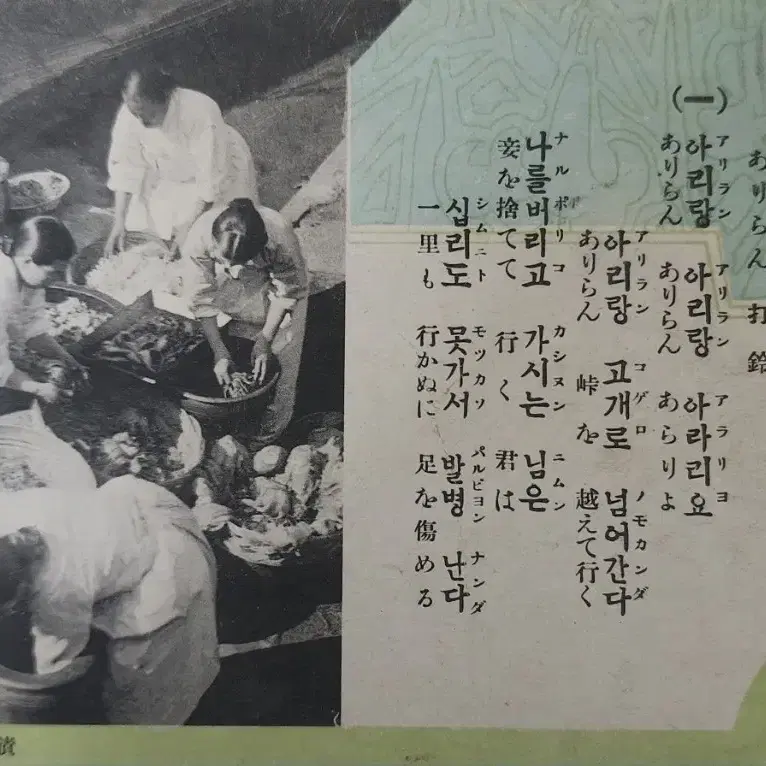 ありらん 打鈴
(一)
アリラン アリラン アラリヨ
아리랑 아리랑 아라리요
ありらん ありらん あらりよ
アリラン コゲロ ノモカンダ
아리랑 고개로 넘어간다
ありらん 峠を 越えて行く
ナルポリコ カシヌン ニムン
나를버리고 가시는 님은
妾を捨てて 行く 君は
シムニト モツカソ パルビヨン ナンダ
십리도 못가서 발병 난다
一里も 行かぬに 足を傷める
漬